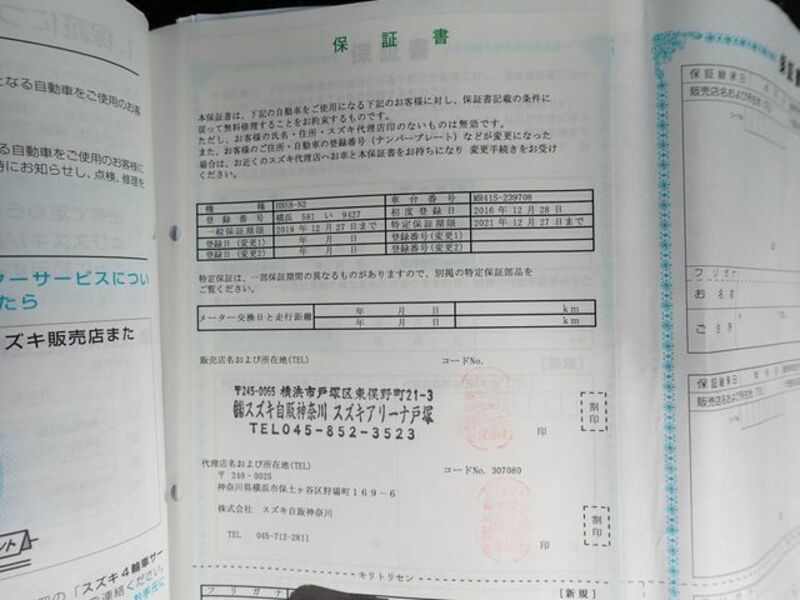 保証書
本保証書は、下記の自動車をご使用になる下記のお客様に対し、保証書記載の条件に
従って無料修理することをお約束するものです。
ただし、お客様の氏名・住所・スズキ代理店印のないものは無効です。
また、お客様のご住所・自動車の登録番号(ナンバープレート)などが変更になった
場合は、お近くのスズキ代理店へお車と本保証書をお持ちになり 変更手続きをお受け
ください。
機種 HBSB-N2 車台番号 MR41S-239708
登録番号 横浜 581 い 9427 初度登録日 2016 年 12 月 28 日
一般保証期限 2019 年 12 月 27 日まで 特定保証期限 2021 年 12 月 27 日まで
登録日(変更1) 年 月 日 登録番号(変更1)
登録日(変更2) 年 月 日 登録番号(変更2)
特定保証は、一部保証期間の異なるものがありますので、別掲の特定保証部品を
ご覧ください。
メーター交換日と走行距離 年 月 日 km
年 月 日 km
販売店名および所在地(TEL) コードNo.
〒245-0065 横浜市戸塚区東俣野町21-3
㈱スズキ自販神奈川 スズキアリーナ戸塚
TEL045-852-3523
印
割印
代理店名および所在地(TEL) コードNo. 307080
〒 240-0025
神奈川県横浜市保土ヶ谷区狩場町169-6
株式会社 スズキ自販神奈川
TEL 045-712-2811
印
割印
キリトリセン
フリガナ [新規]
なる自動車をご使用のお客
る自動車をご使用のお客様に
時にお知らせし、点検、修理を
ターサービスについ
たら
ズキ販売店また
ント
の「スズキ4輪車サー
連絡ください。
保証継承日
販売店名および所在地
フリガナ
お名前
ご住所
保証継承日
販売店名および所在地